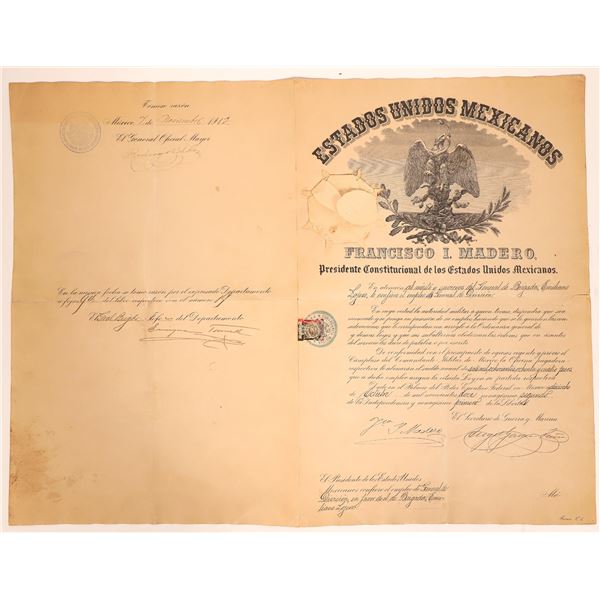 Tómese razón
México, 7 de Noviembre 1912.
El General Oficial Mayor
En la misma fecha se tomó razón por el expresado Departamento
a fojas 96 del libro respectivo con el número
El Gral. Brigr. Jefe del Departamento
ESTADOS UNIDOS MEXICANOS
FRANCISCO I. MADERO,
Presidente Constitucional de los Estados Unidos Mexicanos.
En atención al mérito y servicios del General de Brigada, Emiliano
Lojero, le confiere el empleo de General de División.
En cuya virtud la autoridad militar a quien tocare dispondrá que sea
reconocido y se ponga en posesión de su empleo, haciendo que se le guarden las con-
sideraciones que le correspondan con arreglo a la Ordenanza general de
y demás leyes y que sus subalternos obedezcan las órdenes que en asuntos
del servicio les diere de palabra o por escrito.
De conformidad con el presupuesto de egresos vigente y previo el
Cúmplase del Comandante Militar de México, la Oficina pagadora
respectiva le abonará el sueldo anual de seis mil ochenta y cuatro pesos
que a dicho empleo asigna la citada Ley en su partida respectiva.
Dado en el Palacio del Poder Ejecutivo Federal en México a
de Octubre de mil novecientos doce, nonagésimo segundo
de la Independencia y nonagésimo primero de la Libertad.
El Secretario de Guerra y Marina
Fco. I. Madero
El Presidente de los Estados Unidos
Mexicanos confiere el empleo de General de
División, en favor del de Brigada, Emi-
liano Lojero.